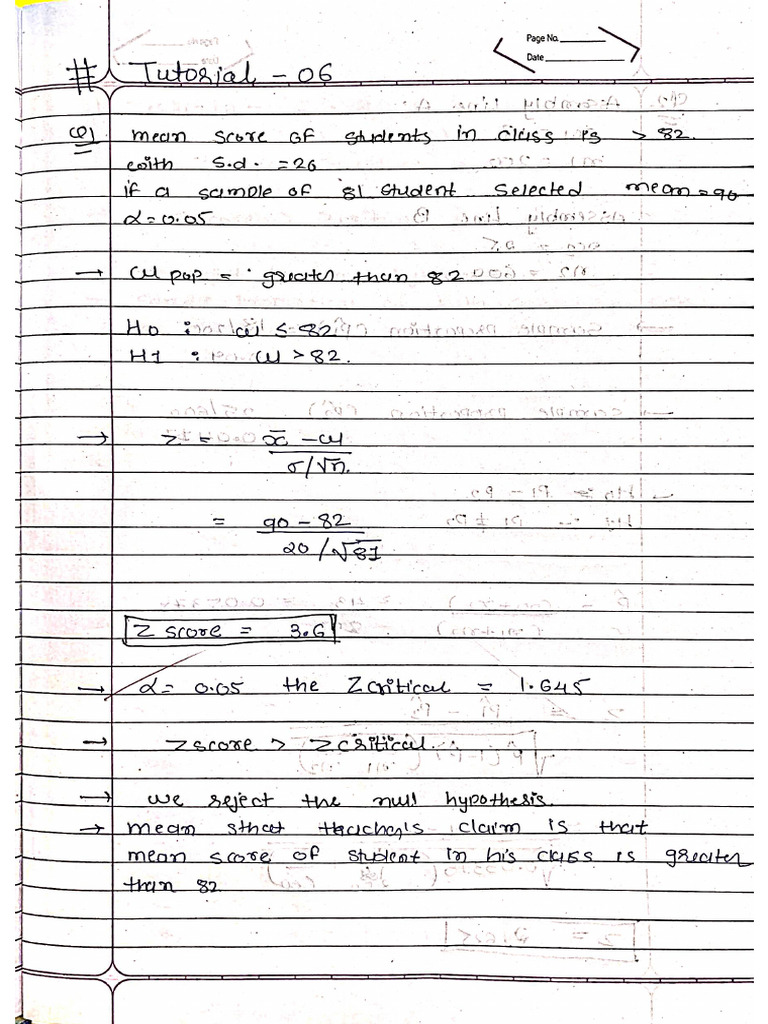 Page No.
Date
# Tutorial - 06
Q1 mean score of students in class is > 82.
with s.d. = 20
if a sample of 81 student selected mean = 90
α = 0.05
→ μ pop = greater than 82
H0 : μ ≤ 82
H1 : μ > 82.
→ Z = x̄ - μ
σ/√n.
= 90 - 82
20/√81
Z score = 3.6
→ α = 0.05 the Z critical = 1.645
→ Z score > Z critical.
→ we reject the null hypothesis.
→ mean that teacher's claim is that
mean score of student in his class is greater
than 82